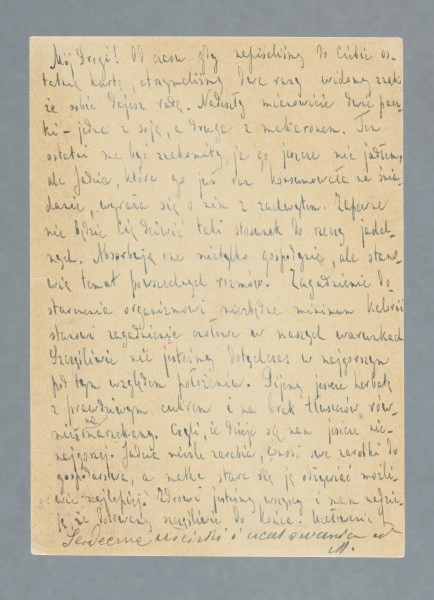 Mój Drogi! Od czasu gdy napisaliśmy do Ciebie os-
tatnią kartę, otrzymaliśmy dwa razy widomy znak
że sobie dajesz radę. Nadeszły mianowicie dwie pacz-
ki – jedna z soją, a druga z makaronem. Ten
ostatni ma być znakomity, ja go jeszcze nie jadłem,
ale Jadzia, która go już raz konsumowała na śnia-
danie, wyraża się o nim z zachwytem. Zapewne
nie będzie Cię dziwić taki stosunek do rzeczy jadal-
nych. Absorbują one nietylko gospodynię, ale stano-
wią temat powszechnych rozmów. Zagadnienie do-
starczenia organizmowi niezbędne minimum kaloryj
stanowi zagadnienie czołowe w naszych warunkach
Szczęśliwie nie jesteśmy dotychczas w najgorszym
pod tym względem położeniu. Pijemy jeszcze herbatę
z prawdziwym cukrem i na brak tłuszczów rów-
nież nie narzekamy. Czyli, że dzieje się nam jeszcze nie-
najgorzej. Jadzia nieźle zarabia, wnosi swe zarobki do
gospodarstwa, a matka stara się ją odżywiać możli-
wie najlepiej. Zdrowi jesteśmy wszyscy i mam nadzie-
ję że dotrwamy szczęśliwie do końca.
Serdeczne uściski i ucałowania od
M.